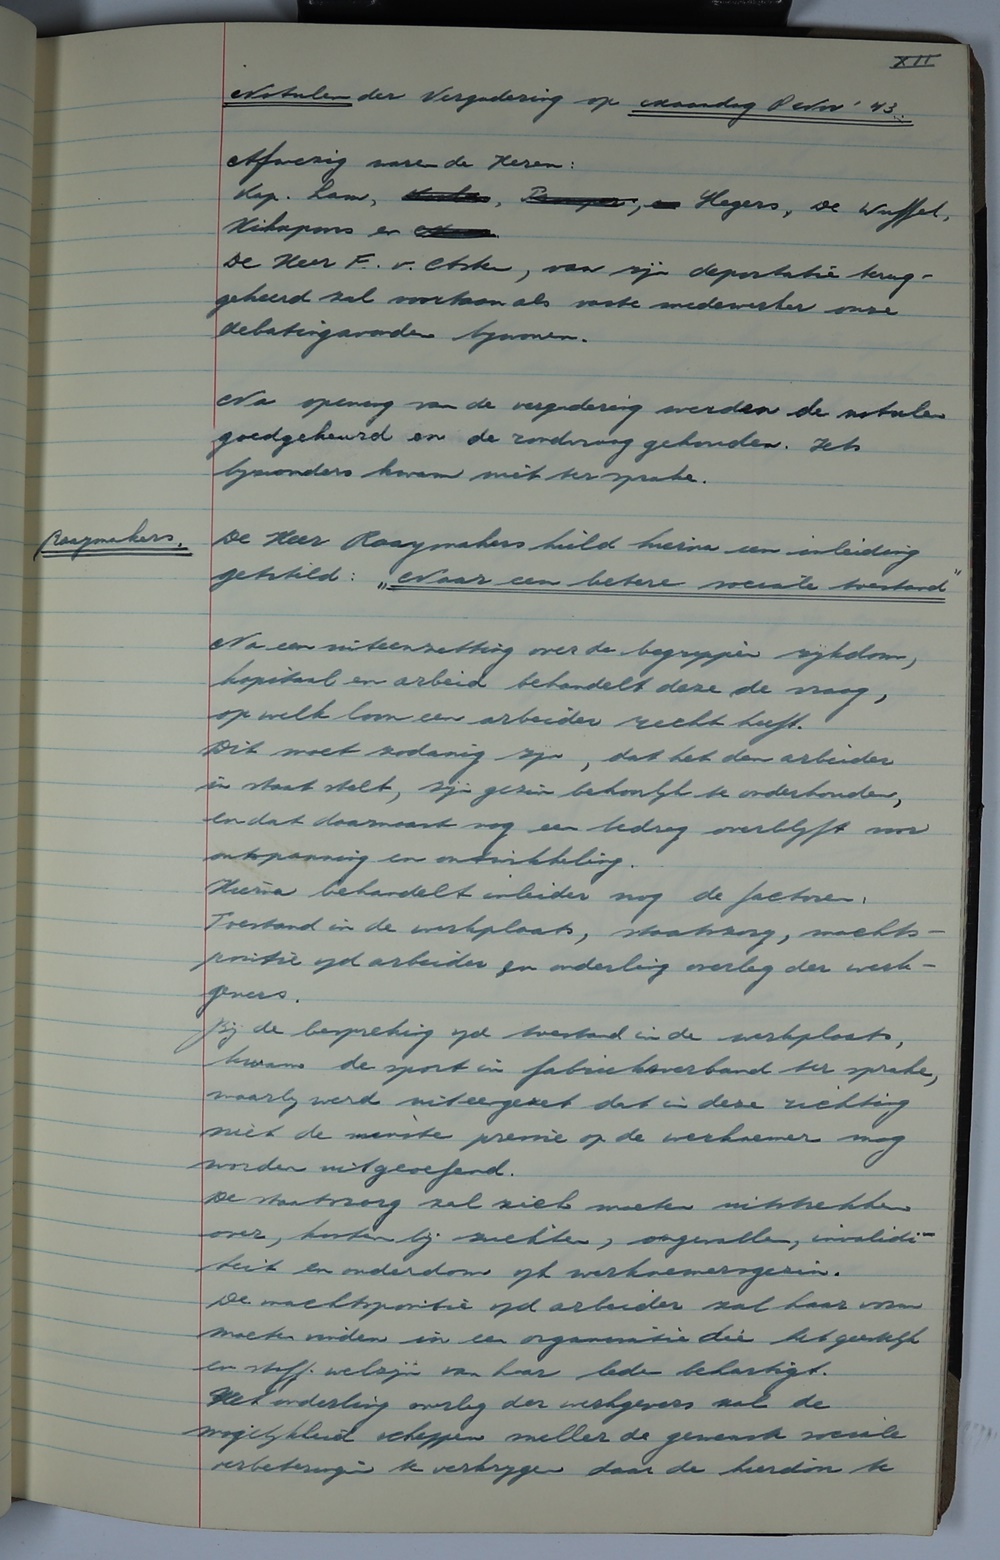 XII
Notulen der Vergadering op Maandag 8 Nov ' 43.
Afwezig waren de Heren:
Kap. Lam, Slegers, De Wuffel,
en
De Heer F. v. Etten, van zijn deportatie terug-
gekeerd zal voortaan als vaste medewerker onze
debatingavonden bijwonen.
Na opening van de vergadering werden de notulen
goedgekeurd en de rondvraag gehouden. Iets
bijzonders kwam niet ter sprake.
Raaymakers.
De Heer Raaymakers hield hierna een inleiding
getiteld: „Naar een betere sociale toestand"
Na een uiteenzetting over de begrippen rijkdom,
kapitaal en arbeid behandelt deze de vraag,
op welk loon een arbeider recht heeft.
Dit moet zodanig zijn, dat het den arbeider
in staat stelt, zijn gezin behoorlijk te onderhouden,
en dat daarnaast nog een bedrag overblijft voor
ontspanning en ontwikkeling.
Hierna behandelt inleider nog de factoren:
Toestand in de werkplaats, staatszorg, machts-
positie v/d arbeider en onderling overleg der werk-
gevers.
Bij de bespreking v/d toestand in de werkplaats,
kwam de sport in fabrieksverband ter sprake,
waarbij werd uiteengezet dat in deze richting
niet de minste pressie op de werknemer mag
worden uitgeoefend.
De staatszorg zal zich moeten uitstrekken
over, kosten bij ziekten, ongevallen, invalidi-
teit en ouderdom v/h werknemersgezin.
De machtspositie v/d arbeider zal haar vorm
moeten vinden in een organisatie die het geestelijk
en stoff. welzijn van haar leden behartigt.
Het onderling overleg der werkgevers zal de
mogelijkheid scheppen sneller de gewenste sociale
verbeteringen te verkrijgen daar de hierdoor te